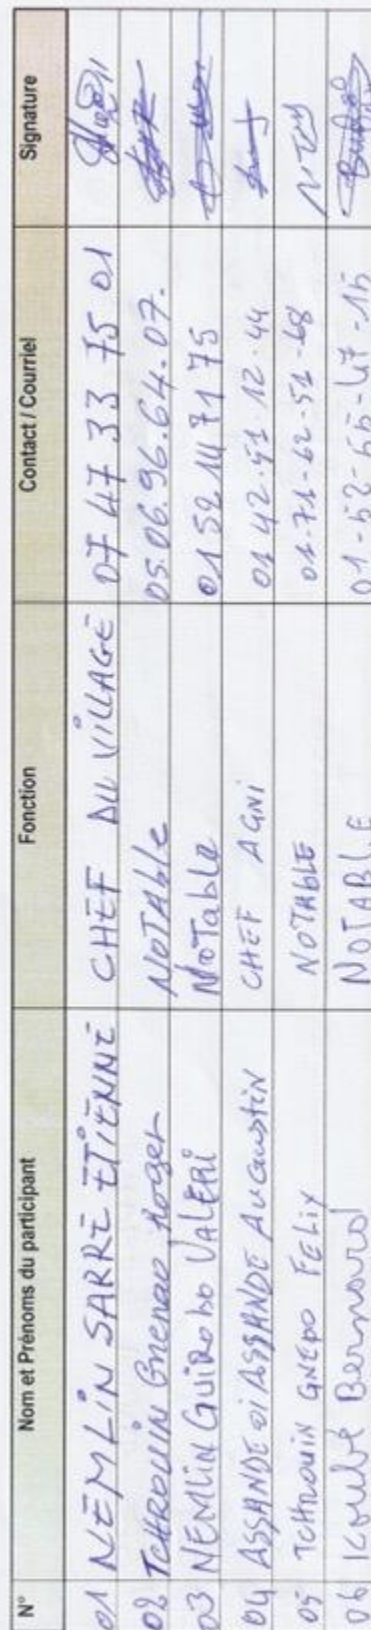 N° Nom et Prénoms du participant Fonction Contact / Courriel Signature
01 NEMLIN SARRE ETIENNE CHEF DU VILLAGE 07 47 33 75 01
02 TCHROUIN Gnenao Roger NOTAble 05.06.96.64.07.
03 NEMLIN GUIROBO VALERI NoTable 01 52 14 71 75
04 ASSANDE oi ASSANDE AUGUSTIN CHEF AGNI 01 42.51.12.44
05 TCHROUIN GNEPO FELIX NOTABLE 01.71-62-51-68
06 KOUBE Bernard NOTABLE 01-52-65-47-15